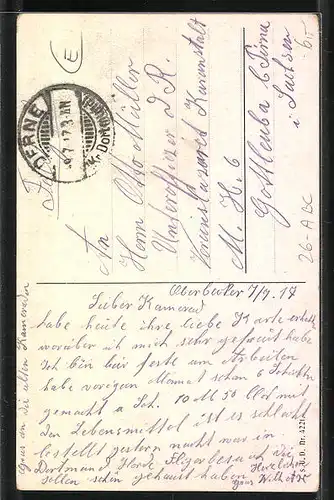 DERNE
9.7.17.3-4N
Kr. Dortm
An
Herrn Otto Müller
Unteroffizier d R.
Vereinslazaret Kuranstalt
M. H. 6
Gottleuba b Pirna
i Sachsen
Oberbecker 7/7. 17
Lieber Kamerad
habe heute ihre liebe Karte erhalt
worüber ich mich sehr gefreut habe
Ich bin hir feste am Arbeiten
habe vorigen Monat schon 6 Schichten
gemacht a Sch. 10 M 50
den Lebensmittel ist es schlecht
bestellt gestern nacht war in
Dortmund Hörde Fliegerbesuch die
sollen schön gehaust haben
Herzliche
Gruss
Grus an die alten Kameraden
26-A 6c
E